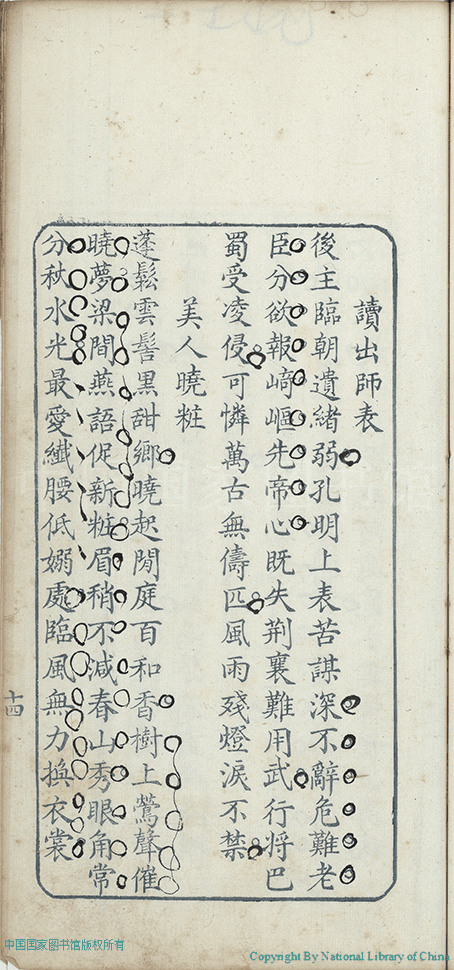 讀出師表
後主臨朝遺緒弱孔明上表苦謀深不辭危難老
臣分欲報崎嶇先帝心既失荆襄難用武行将巴
蜀受凌侵可憐萬古無儔匹風雨殘燈淚不禁
美人曉粧
蓬鬆雲髻黑甜鄉曉起閒庭百和香樹上鶯聲催
曉夢梁間燕語促新粧眉稍不減春山秀眼角常
分秋水光最愛纖腰低嫋處臨風無力換衣裳
十四
中国国家图书馆版权所有
Copyright By National Library of China